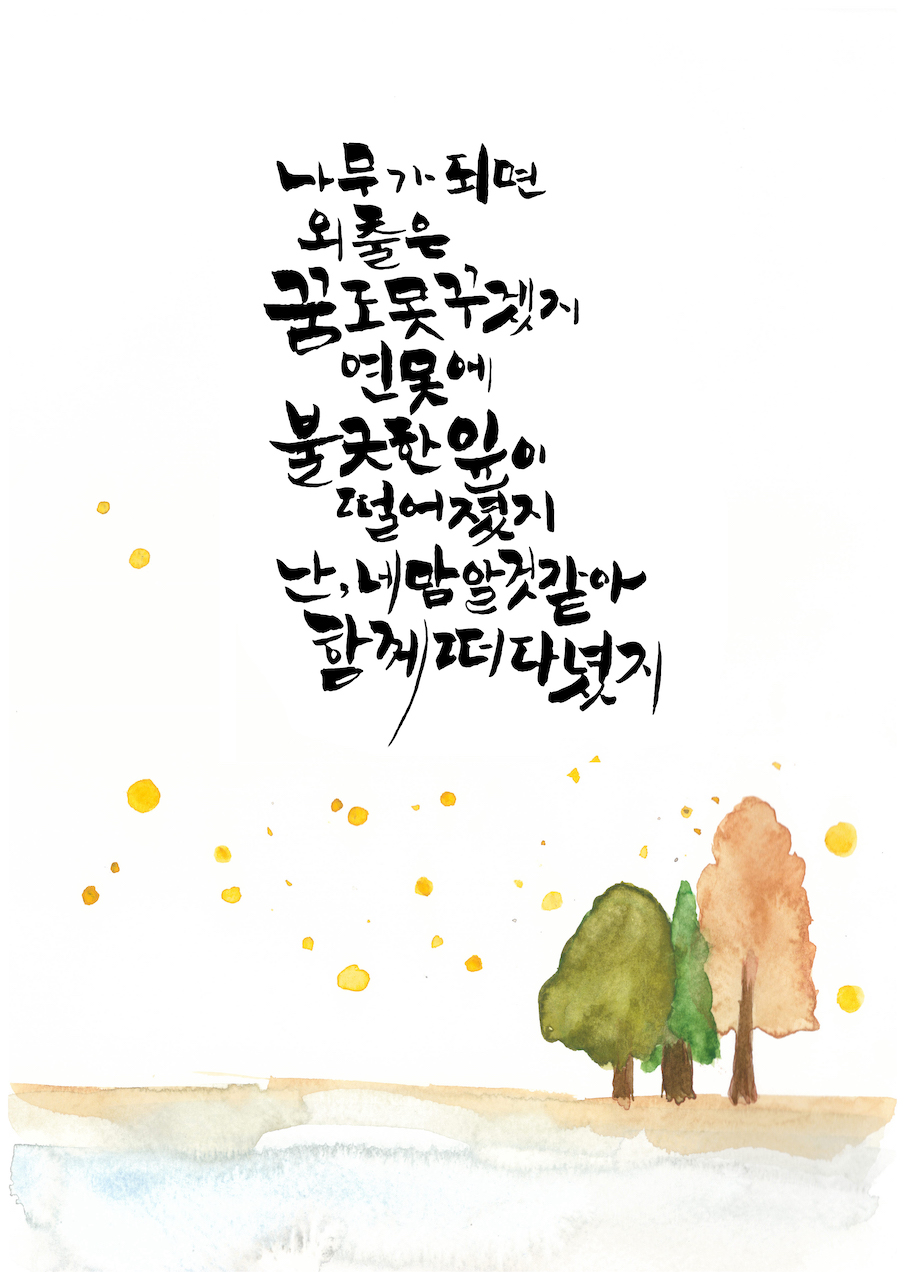 나무가 되면
외출은
꿈도 못 꾸겠지
연못에
불긋한 잎이
떨어졌지
난, 네 맘 알 것 같아
함께 떠다녔지